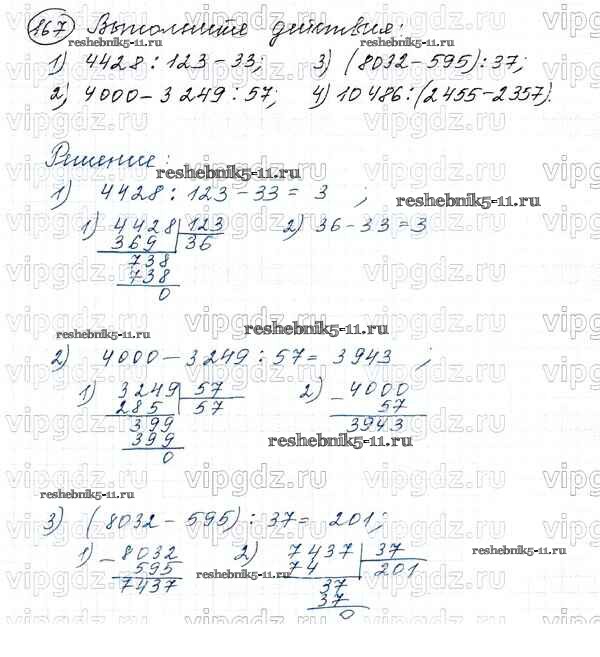 167 Выполните действия:
reshebnik5-11.ru reshebnik5-11.ru
1) 4428 : 123 - 33; 3) (8032 - 595) : 37;
2) 4000 - 3249 : 57; 4) 10486 : (2455 - 2357).
vipgdz.ru vipgdz.ru vipgdz.ru
Решение:
reshebnik5-11.ru
1) 4428 : 123 - 33 = 3 ;
reshebnik5-11.ru
vipgdz.ru vipgdz.ru vipgdz.ru
1) 4428 123 2) 36 - 33 = 3
369 36
738
738
0
vipgdz.ru vipgdz.ru vipgdz.ru
reshebnik5-11.ru reshebnik5-11.ru
2) 4000 - 3249 : 57 = 3943 ;
1) 3249 57 2) - 4000
285 57 57
399 3943
399
reshebnik5-11.ru
0
vipgdz.ru vipgdz.ru vipgdz.ru
reshebnik5-11.ru
3) (8032 - 595) : 37 = 201;
vipgdz.ru vipgdz.ru vipgdz.ru
1) - 8032 2) 7437 37
595 74 201
reshebnik5-11.ru reshebnik5-11.ru
7437 37
37
0
vipgdz.ru vipgdz.ru vipgdz.ru